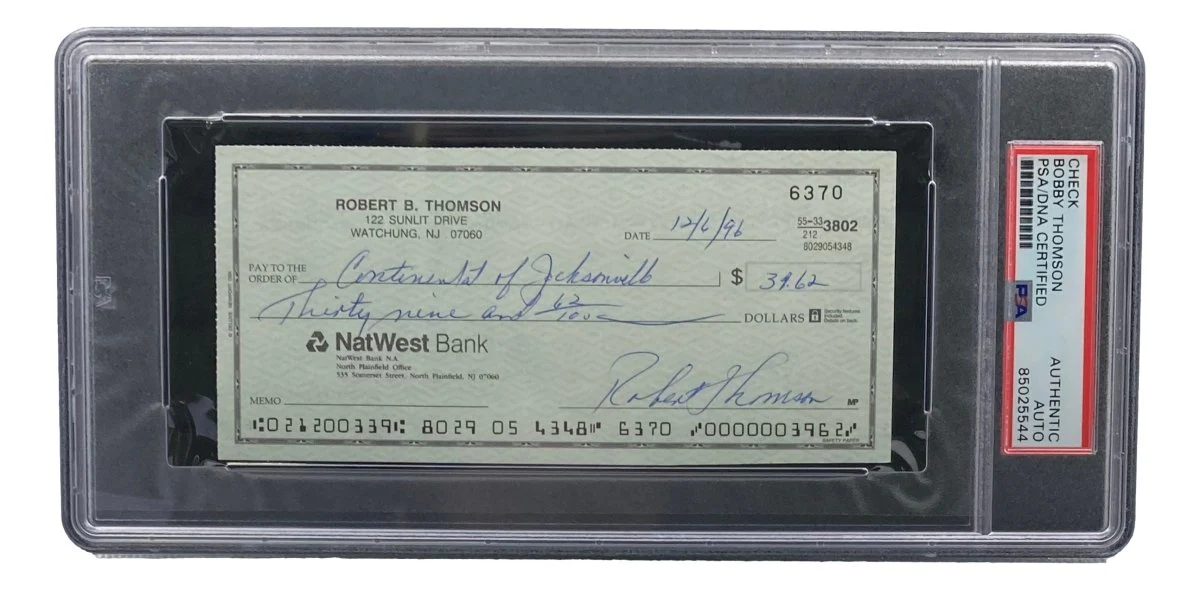 6370
ROBERT B. THOMSON
122 SUNLIT DRIVE
WATCHUNG, NJ 07060
DATE 12/6/96
55-33 3802
212
8029054348
PAY TO THE
ORDER OF Continental of Jacksonville $ 39.62
Thirty nine and 62/100 DOLLARS
Security features
included.
Details on back.
NatWest Bank
NatWest Bank N.A.
North Plainfield Office
535 Somerset Street, North Plainfield, NJ 07060
Robert Thomson
MEMO MP
⑆021200339⑆ 8029 05 4348⑈ 6370 ⑇0000003962⑇
SAFETY PAPER
CHECK
BOBBY THOMSON
PSA/DNA CERTIFIED
PSA
AUTHENTIC
AUTO
85025544